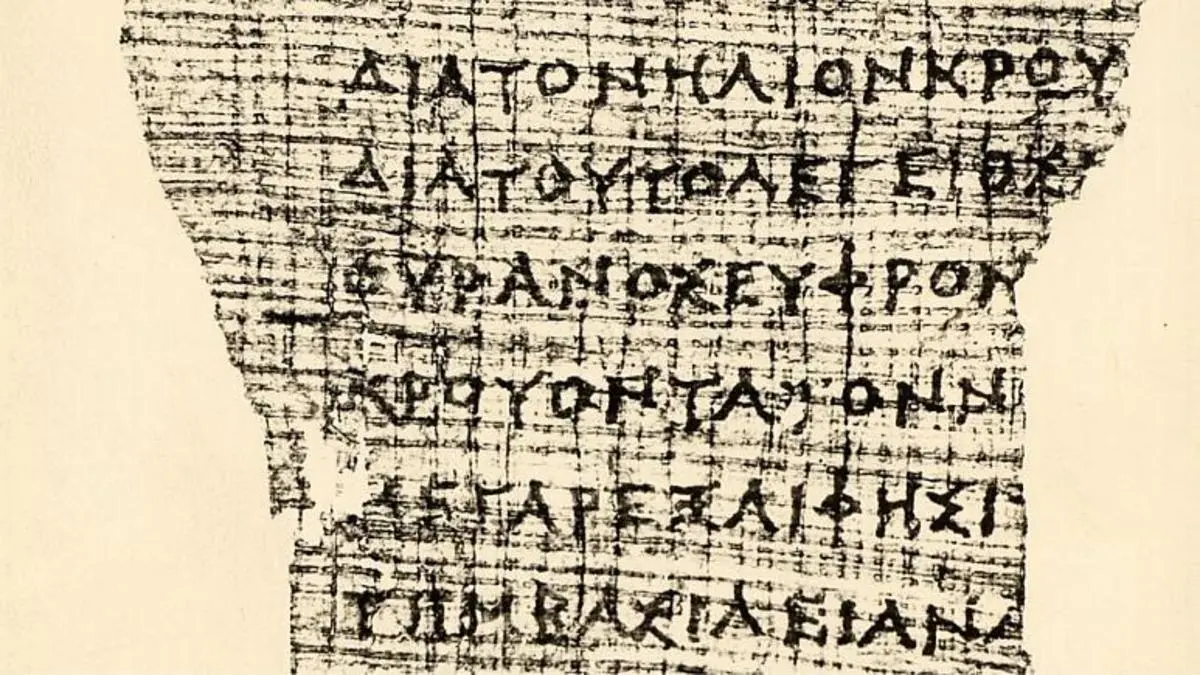 ΔΙΑΤΟΝΗΛΙΟΝΚΡΟΥ
ΔΙΑΤΟΥΤΟΛΕΓΕΙΟΣ
ΟΥΡΑΝΟΣΕΥΦΡΟΝ
ΚΡΟΥΟΝΤΑΤΟΝΝ
ΔΕΓΑΡΕΞΑΙΦΗΣΙ
ΤΗΜΒΑΣΙΛΕΙΑΝ